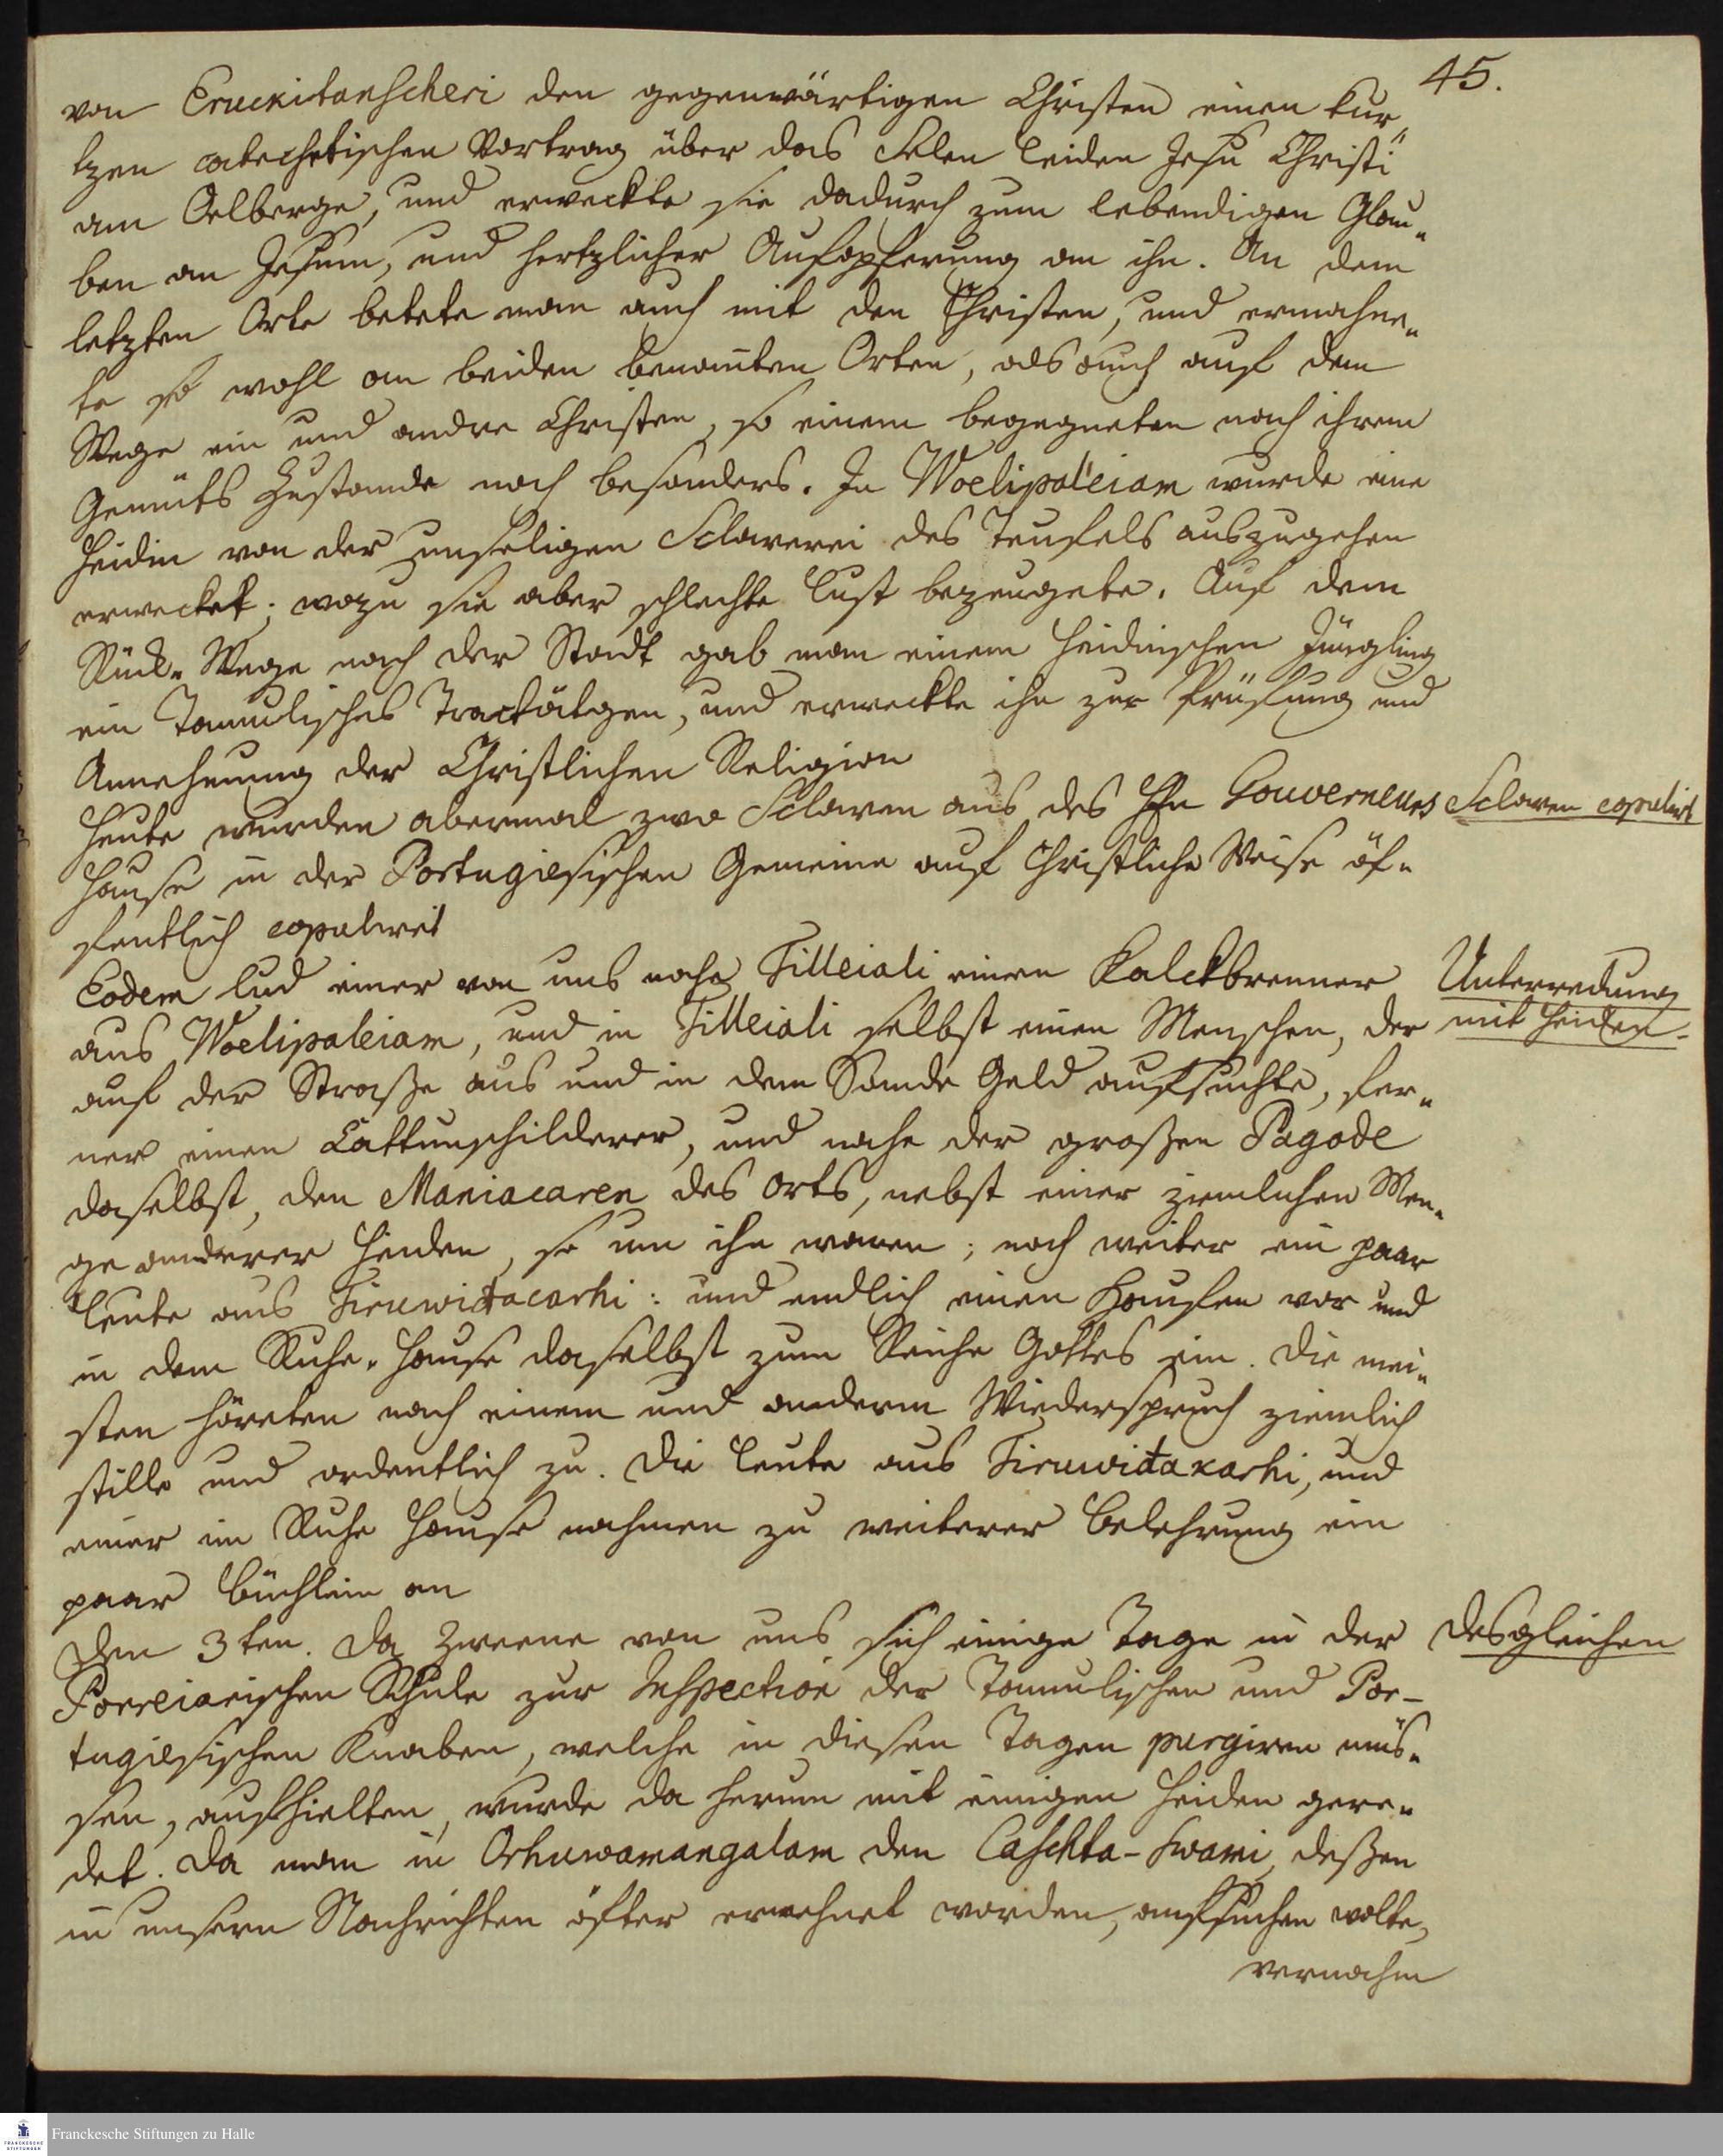 45.
von Eruckitanscheri den gegenwärtigen Christen einen kur„
tzen catechetischen Vortrag über das Selen leiden Jesu Christi
am Oelberge, und erweckte sie dadurch zum lebendigen Glau„
ben an Jesum, und hertzlicher Aufopferung an ihn. An dem
letzten Orte betete man auch mit den Christen, und ermahne„
te so wohl an beiden benanten Orten, als auch auf dem
Wege ein und andre Christen, so einem begegneten nach ihrem
Gemüts Zustande noch besonders. In Woelipaleiam wurde eine
Heidin von der unseligen Sclaverei des Teufels auszugehen
erwecket; wozu sie aber schlechte Lust bezeugete. Auf dem
Rück„Wege nach der Stadt gab man einem Heidnischen Jüngling
ein Tamulisches Tractätgen, und erweckte ihn zur Prüfung und
Annehmung der Christlichen Religion
Heute wurden abermal zwo Sclaven aus des Hn Gouverneurs
Sclaven copulirt
Hause in der Portugiesischen Gemeine auf Christliche Weise öf„
fentlich copulirt
Eodem lud einer von uns nahe Tilleiali einen Kalckbrenner
Unterredung
mit Heiden.
aus Woelipaleiam, und in Tilleiali selbst einen Menschen, der
auf der Straße aus und in dem Sande Geld aufsuchte, fer„
ner einen Cattunschilderer, und nahe der großen Pagode
daselbst, den Maniacaren des Orts, nebst einer ziemlichen Men„
ge anderer Heiden, so um ihn waren; noch weiter ein paar
Leute aus Tiruwitacarhi: und endlich einen Haufen vor und
in dem Ruhe„Hause daselbst zum Reiche Gottes ein. Die mei„
sten höreten nach einem und anderm Wiederspruch ziemlich
stille und ordentlich zu. Die Leute aus Tiruwitakarhi, und
einer im Ruhe Hause nahmen zu weiterer Belehrung ein
paar Büchlein an
Den 3ten. Da Zweene von uns sich einige Tage in der
desgleichen
Porreiarischen Schule zur Inspection der Tamulischen und Por-
tugiesischen Knaben, welche in diesen Tagen purgiren müs„
sen, aufhielten, wurde da herum mit einigen Heiden gere„
det. Da man in Orhuwamangalam den Caschta-Swami, deßen
in unsern Nachrichten öfter erwehnet worden, aufsuchen wolte,
vernahm
Franckesche Stiftungen zu Halle
FRANCKESCHE
STIFTUNGEN